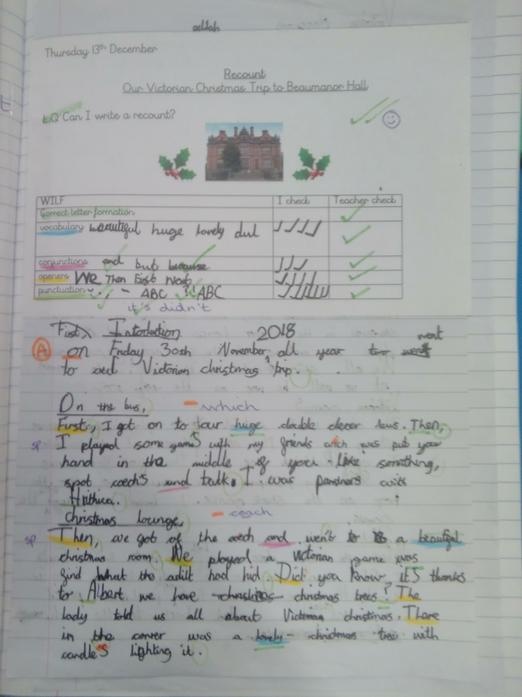 Thursday 13th December
Recount
Our Victorian Christmas Trip to Beaumanor Hall
LO Can I write a recount?
WILF I check Teacher check
Correct letter formation
vocabulary beautiful huge lovely dul
conjunctions and but because
openers We Then First Next
punctuation . , - ABC ? ! ABC
it's didn't
First Intordetion 2018
on Friday 30th November, all year went
to out Victorian christmas trip.
On the bus, - which
First, I got on to our huge double decor bus. Then,
sp I played some games with my friends was put your
hand in the middle if you like something,
spot coach's and talk. I was partners with
Christmas lounge, - coach
sp Then, we got of the and went to a beautiful
christmas room. We played a Victorian game was
find what the adilt had hid. Did you know, it's thanks
to Albert we have christmas trees? The
lady told us all about Victorian christmas. There
in the corner was a lovely christmas tree with
candle's lighting it.